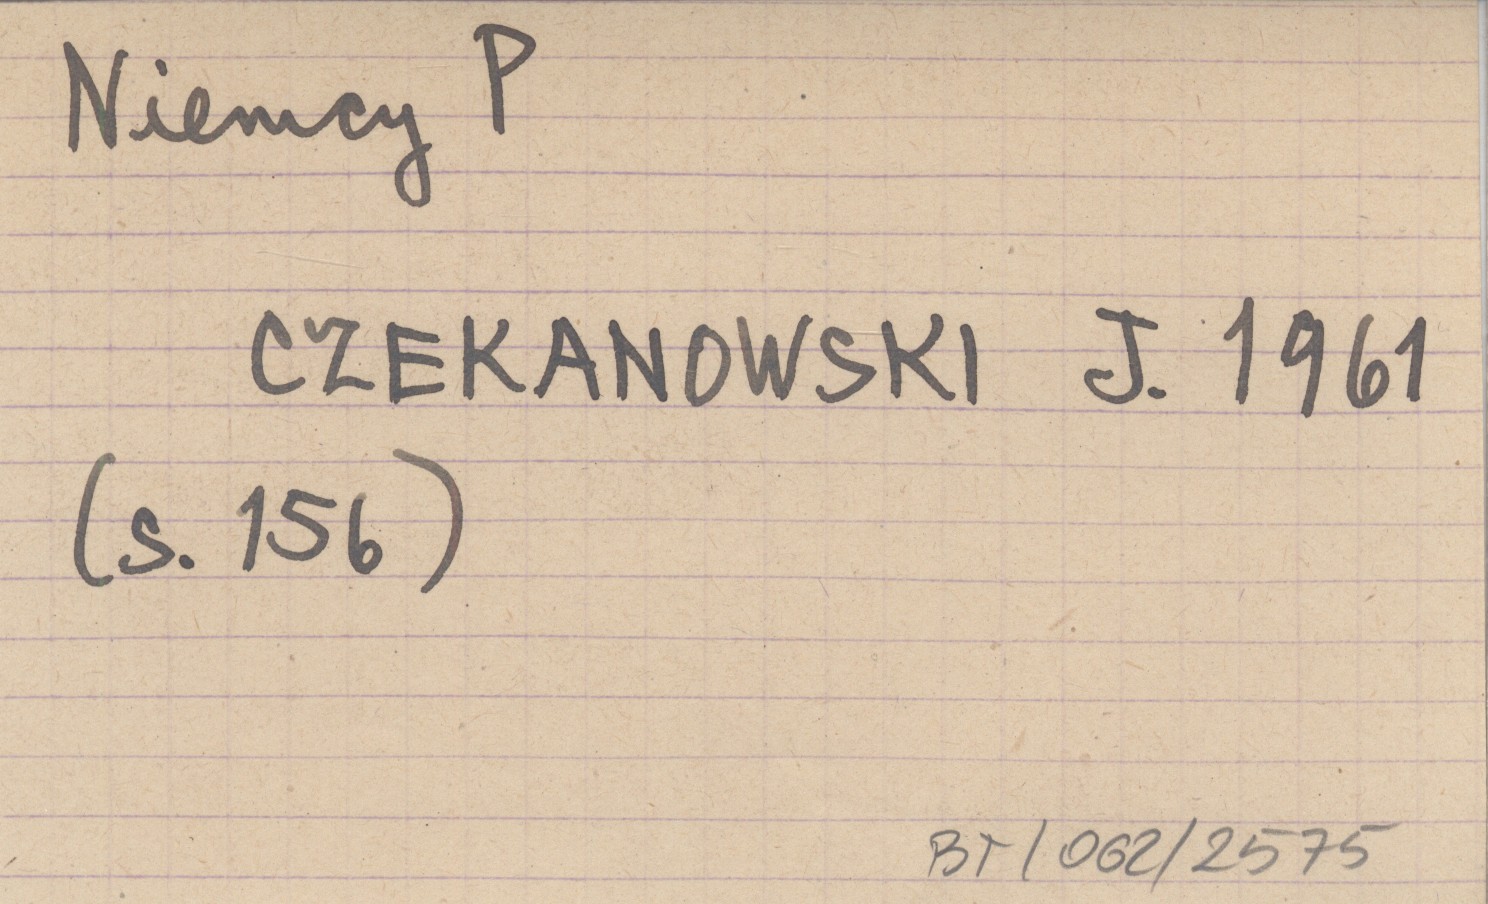 Niemcy P
CZEKANOWSKI J. 1961
(s. 156)
BT/062/2575